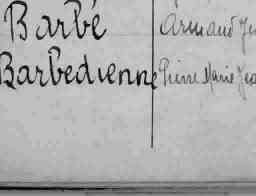 Barbé Armand Je
Barbedienne Pierre Marie Jea